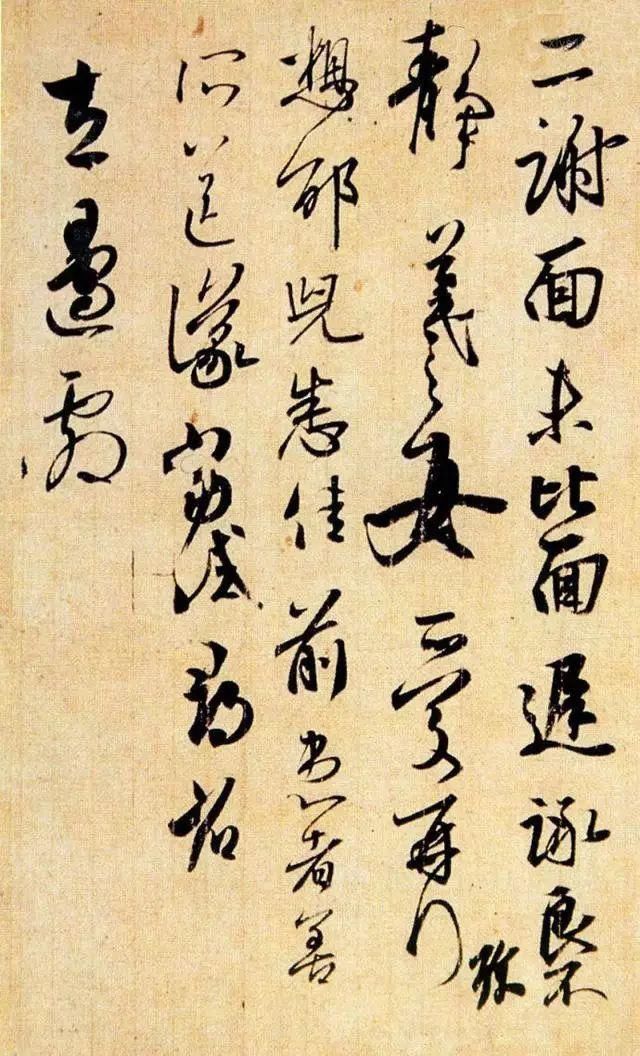 二謝面未比面遲詠良不
靜羲之女愛再拜
珍
想邵兒悉佳前患者善
所送議當試尋省
左邊劇